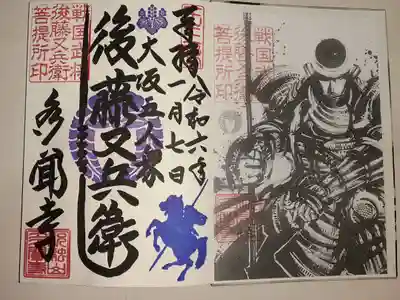 奉拝 令和六年
一月七日
大阪五人衆
後藤又兵衛
戦国武将
後藤又兵衛
菩提所印
多聞寺
戦国武将
後藤又兵衛